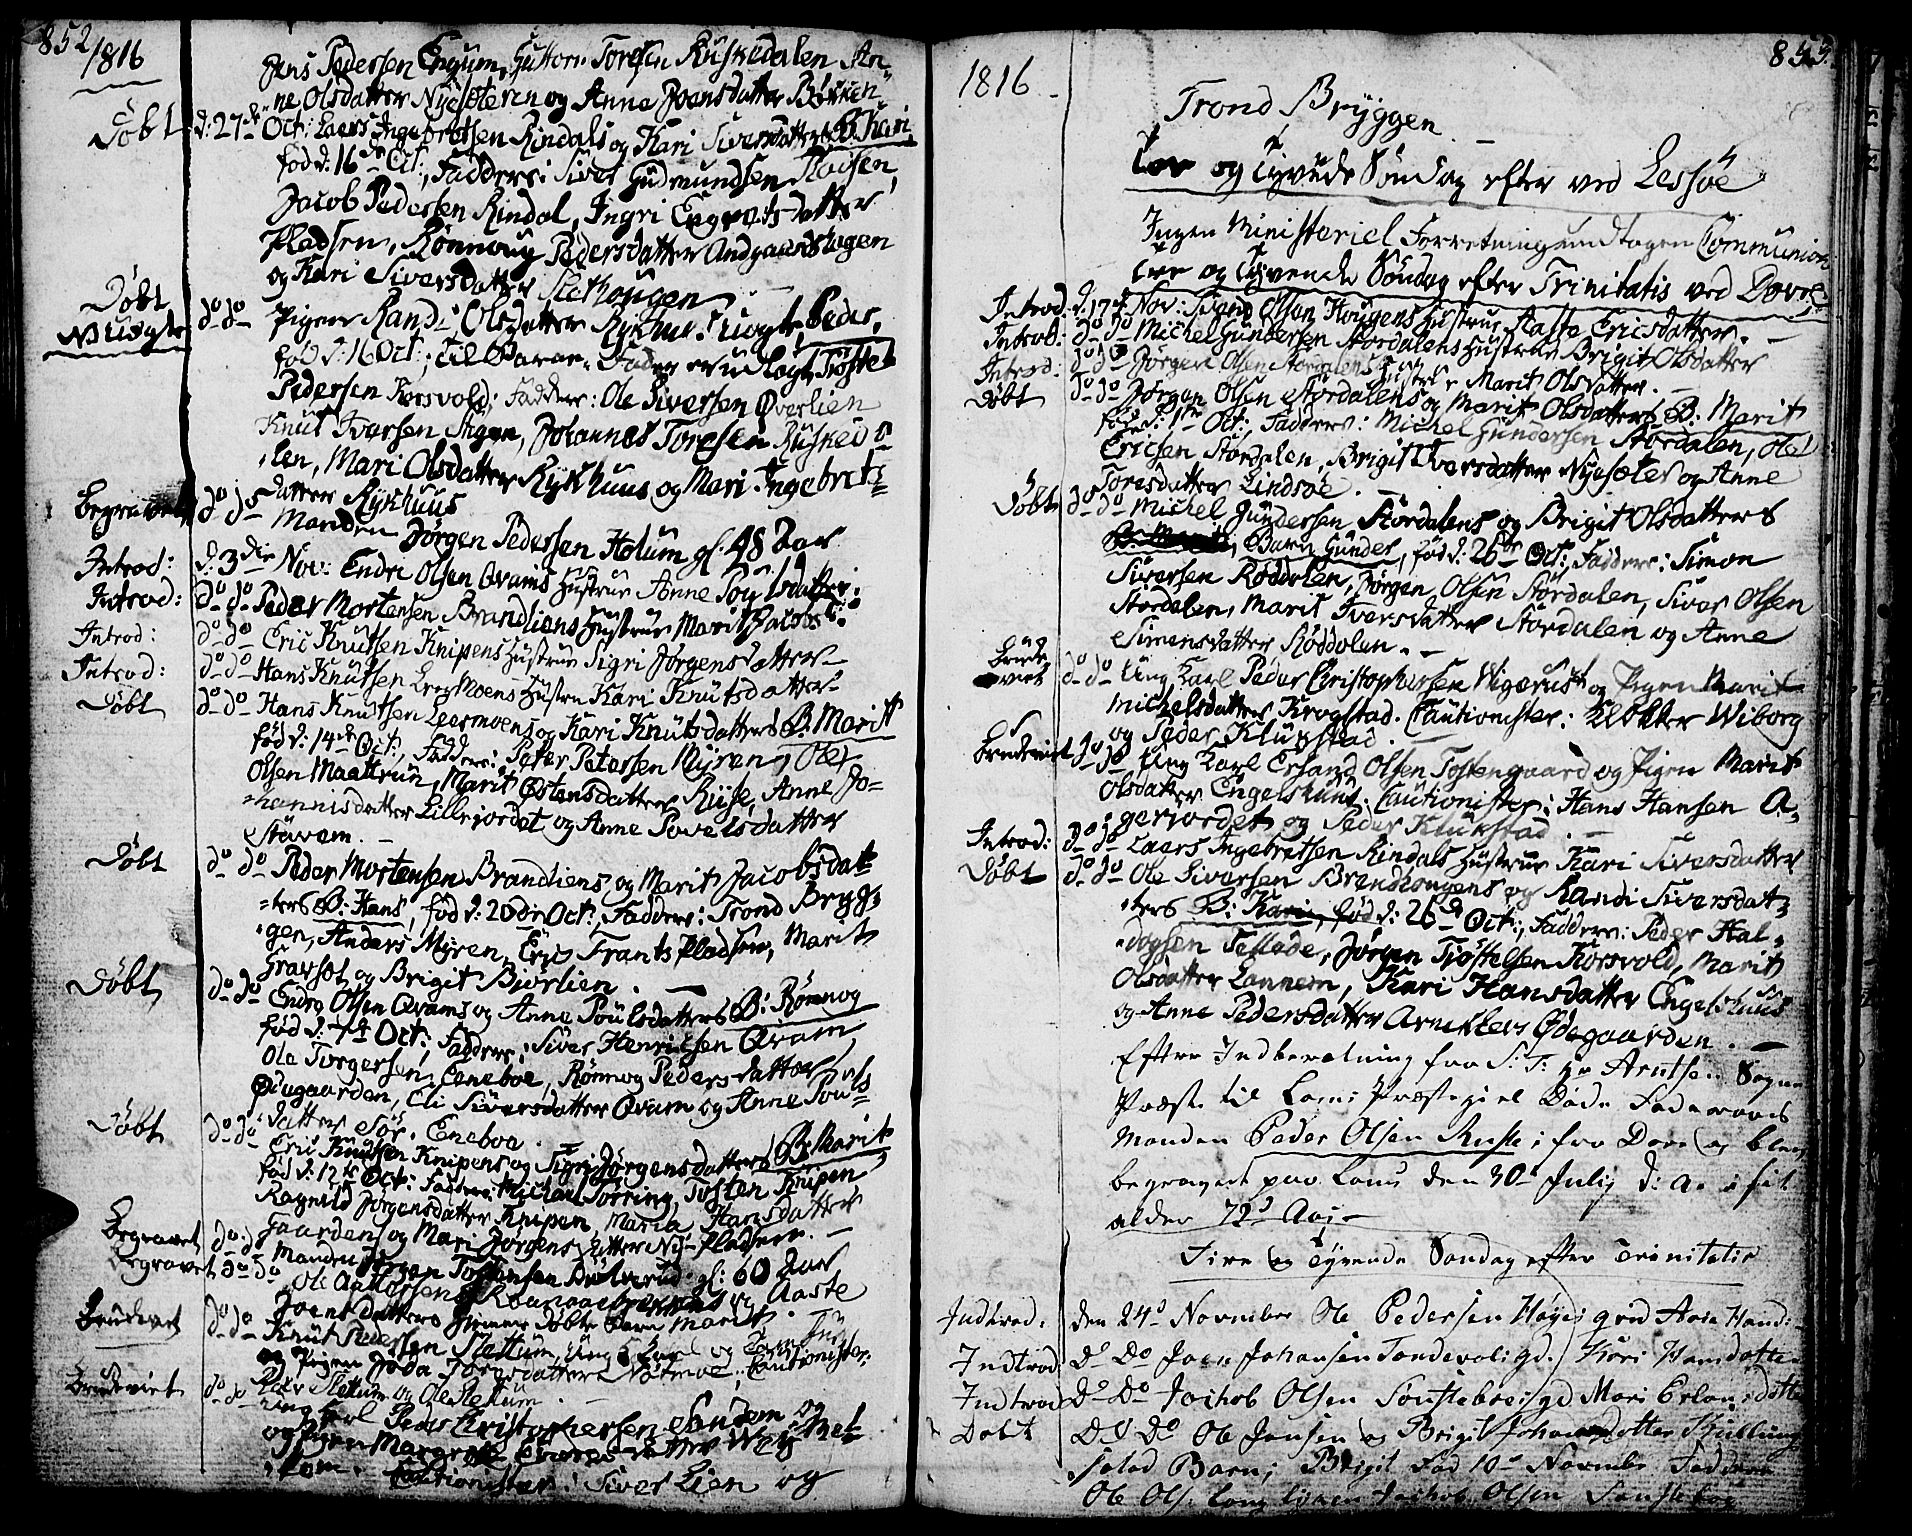 852
1816
Jens Pedersen Engum, Guttorm Toresen Ruskedalen An-
ne Olsdatter Nyesæteren og Anne Joensdatter Bekken
Døbt d: 27de Oct: Laers Ingebretsen Rindals og Kari Siversdatters B: Kari
fød d: 16de Oct:, Faddere: Siver Gudmundsen Pladsen,
Jacob Pedersen Rindal, Ingri Engvorsdatter
Pladsen, Rønnoug Pedersdatter Andgaardshagen
og Kari Siversdatter Slethougen
Døbt
NB Uægte do do Pigen Randi Olsdatter Rykhus: Uægte Peder,
fød d: 16 Oct:, til Barne-Fader er udlagt Tjøstel
Pedersen Korsvold; Faddere: Ole Siversen Øverlien
Knut Iversen Stigen, Johannes Toresen Ruskeda-
len, Mari Olsdatter Rykhuus og Mari Ingebrets-
datter Rykhuus
Begravet do do Manden Jørgen Pedersen Holum gl. 48 Aar
Introd: d: 3die Nov: Endre Olsen Qvams Hustrue Anne Poulsdatter
Introd: do do Peder Mortensen Brandliens Hustrue Marit Jacobs d:
Introd: do do Eric Knutsen Knipens Hustrue Sigri Jørgensdatter
Introd: do do Hans Knutsen Leermoens Hustrue Kari Knutsdatter
Døbt do do Hans Knutsen Leermoens og Kari Knutsdatters B: Marit
fød d: 14de Oct:, Faddere: Peter Petersen Myren, Ole
Olsen Maattrun, Marit Østensdatter Riise, Anne Jo-
hannisdatter Lillejordet og Anne Povelsdatter
Stavem
Døbt do do Peder Mortensen Brandliens og Marit Jacobsdat-
ters B: Hans, fød d: 20de Oct:, Faddere: Trond Bryg-
gen, Anders Myren, Eric Frants Pladsen, Marit
Gravset og Brigit Bjørlien.
Døbt do do Endre Olsen Qvams og Anne Poulsdatters B: Rønnog
fød d: 7de Oct: Faddere: Siver Henricsen Qvam
Ole Torgersen Eneboe, Rønnog Pedersdatter
Ødegaarden, Eli Siversdatter Qvam og Anne Pouls-
datter Sør-Eneboe.
Døbt do do Eric Knutsen Knipens og Sigri Jørgensdatters B: Marit
fød d: 12te Oct: Faddere: Michel Torring, Tosten Knipen
Ragnild Jørgensdatter Knipen, Maria Hansdatter
Gaarden og Mari Jørgensdatter Ny-Pladsen.
Begravet do do Manden Jørgen Tostensen gl: 60 Aar
Begravet do do Ole og Aaste
Joensdatters hjemme døbte Barn Marit.
Brudeviet do do Knut Pedersen Slettum, Ung Karl
og Pigen Joda Joensdatter Cautionister:
Slettum og Ole Slettum
Brudeviet do do Ung Karl Peder Kristophersen Sandem og
og Pigen Margrete
Cautionister: Siver Lien og
853
1816
Trond Bryggen
Toe og Tyvende Søndag efter ved Lessøe
Ingen Ministeriel Forretning undtagen Communion
Toe og Tyvende Søndag efter Trinitatis ved Dovre
Introd: d: 17de Nov: Sivert Olsen Hougens Hustrue Aaste Ericsdatter
Introd: do do Michel Gundersen Stordalens Hustrue Brigit Olsdatter
Introd: do do Jørgen Olsen Stordalens Hustrue Marit Olsdatter
Døbt do do Jørgen Olsen Stordalens og Marit Olsdatters B: Marit
fød d: 1te Oct: Faddere: Michel Gundersen Stordalen, Ole
Ericsen Stordalen, Brigit Iversdatter Nyesæter og Anne
Toresdatter Lindsøe
Døbt do do Michel Gundersen Stordalens og Brigit Olsdatters
Barn Gunder, fød d: 26de Oct: Faddere: Simon
Siversen Røddølen, Jørgen Olsen Stordalen, Siver Olsen
Stordalen, Marit Iversdatter Stordalen og Anne
Simensdatter Røddølen
Brude
viet do do Ung Karl Peder Christophersen Wigerust og Pigen Marit
Michelsdatter Krogstad. Cautionister: Klokker Wiborg
og Peder Klukstad.
Brudeviet do do Ung Karl Erland Olsen Tostengaard og Pigen Marit
Olsdatter Engelshuus. Cautionister: Hans Hansen A-
gerjordet og Peder Klukstad
Introd: do do Laers Ingebretsen Rindals Hustrue Kari Siversdatter
Døbt do do Ole Siversen Brendhougens og Randi Siversdat-
ters B: Kari, fød d: 26de Oct:, Faddere: Peder Hal-
dogsen Tellede, Jørgen Tjøstelsen Korsvold, Marit
Olsdatter Lannem, Kari Hansdatter Engelshuus
og Anne Pedersdatter Arneklevs Ødegaarden.
Efter Indberetning fra S: T: Hr Arntsen Sogne
Præst til Lom: Præstegiel Døde Føderaads
Manden Peder Olsen Ruste, fra Dovre og blev
begravet paa Lom den 30te July d: A: i sit
alder 72d Aar
Fire og Tyvende Søndag efter Trinitatis
Indtrod: den 24d November Ole Pedersen qvd Hansd
Indtrod: Do Do Joen Johansen Tondevold gd. Kari Hansdatter
Indtrod Do Do Jachob Olsen gd Mari Erlandsdotter
Døbt Do Do Ole Jensen og Brigit Johannesdotter
Barn; Brigit Fød 10d Novembr Faddere
Ole Ols: Jachob Olsen